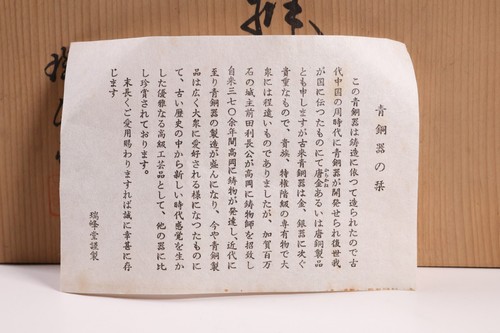 青銅器の栞
この青銅器は鋳造に依つて造られたので古
代中国の周時代に青銅器が開発せられ後世我
が国に伝つたものにて唐金あるいは唐銅製品
とも申しますが古来青銅器は金、銀器に次ぐ
貴重なもので、貴族、特権階級の専有物で大
衆には程遠いものでありましたが、加賀百万
石の城主前田利長公が高岡に鋳物師を招致し
自来三七〇余年間高岡に鋳物が発達し、近代に
至り青銅器の製造が盛んになり、今や青銅製
品は広く大衆に愛好される様になつたものに
て、古い歴史の中から新しい時代感覚を生か
した優雅なる高級工芸品として、他の器に比
し珍賞されております。
末長くご愛用賜わりますれば誠に幸甚に存
じます
瑞峰堂謹製